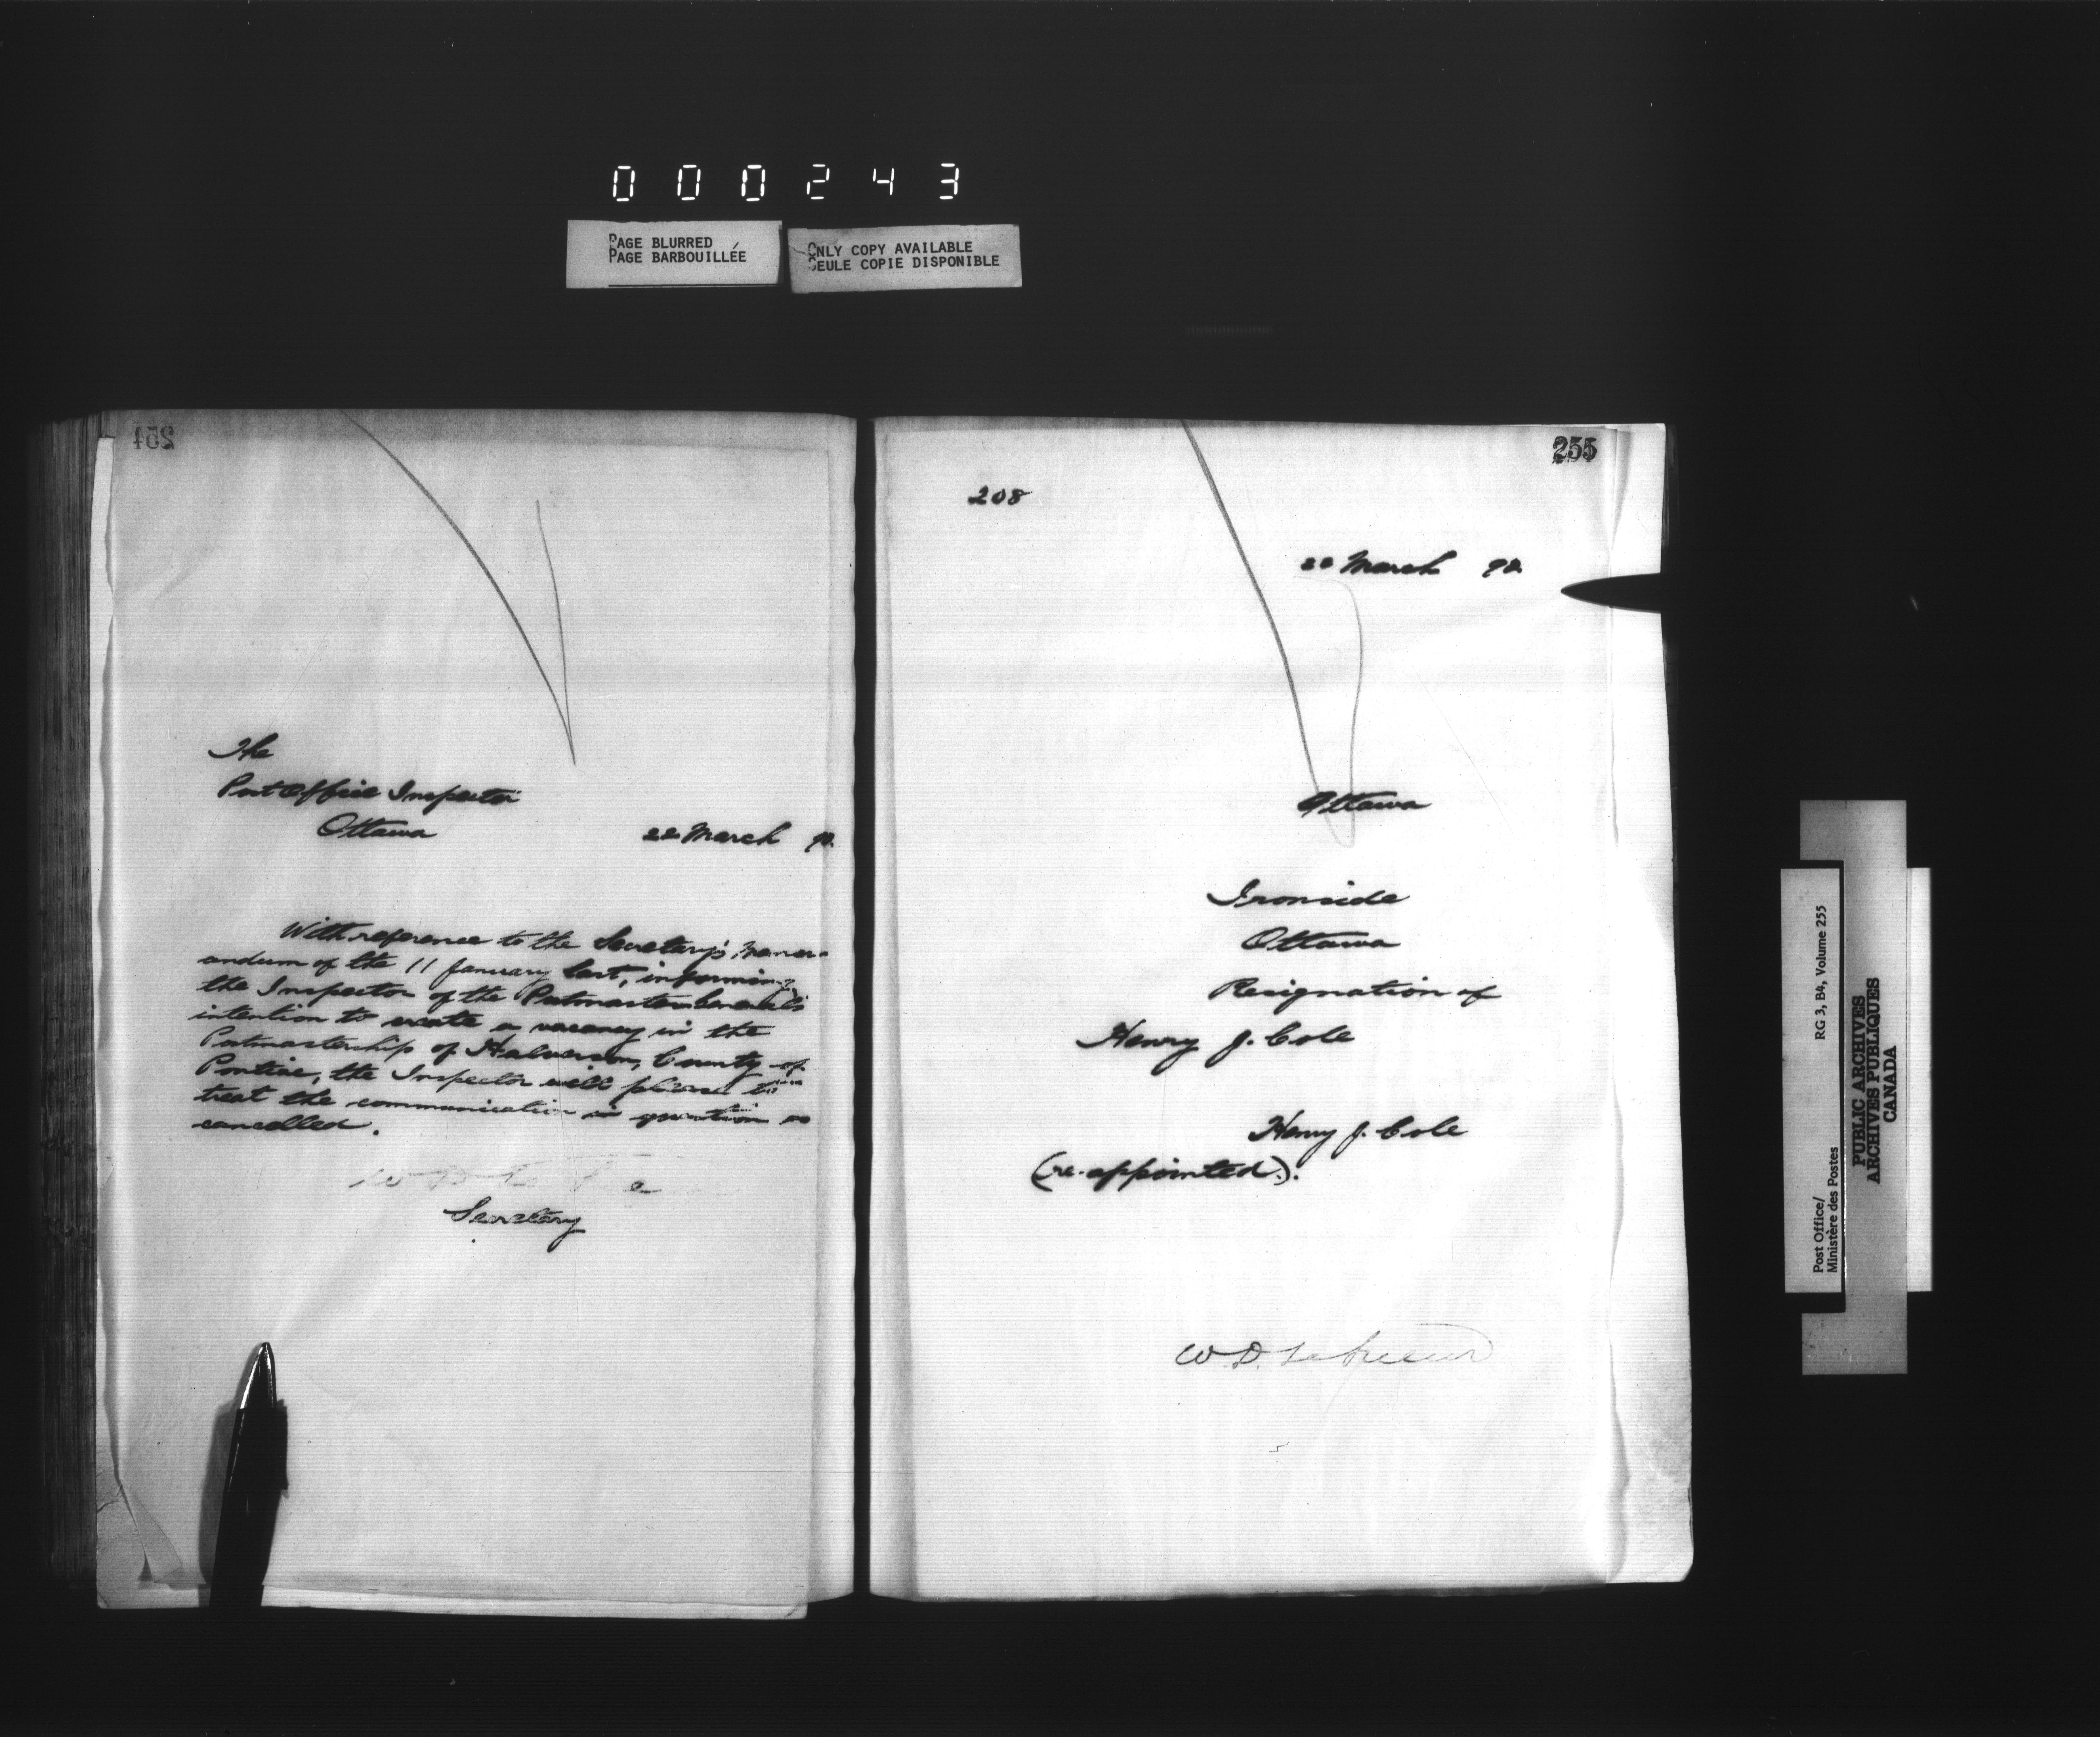 000243
PAGE BLURRED
PAGE BARBOUILLÉE
ONLY COPY AVAILABLE
SEULE COPIE DISPONIBLE
254
The
Post Office Inspector
Ottawa
22 March 90.
With reference to the Secretary's memor-
andum of the 11 January last, informing
the Inspector of the Postmaster General's
intention to create a vacancy in the
Postmastership of Halverson, County of
Pontiac, the Inspector will please to
treat the communication in question as
cancelled.
W D
Secretary
255
208
22 March 90.
Ottawa
Ironside
Ottawa
Resignation of
Henry J. Cole
Henry J. Cole
(re-appointed).
W. D. LeSueur
Post Office/
Ministère des Postes
RG 3, B4, Volume 255
PUBLIC ARCHIVES
ARCHIVES PUBLIQUES
CANADA